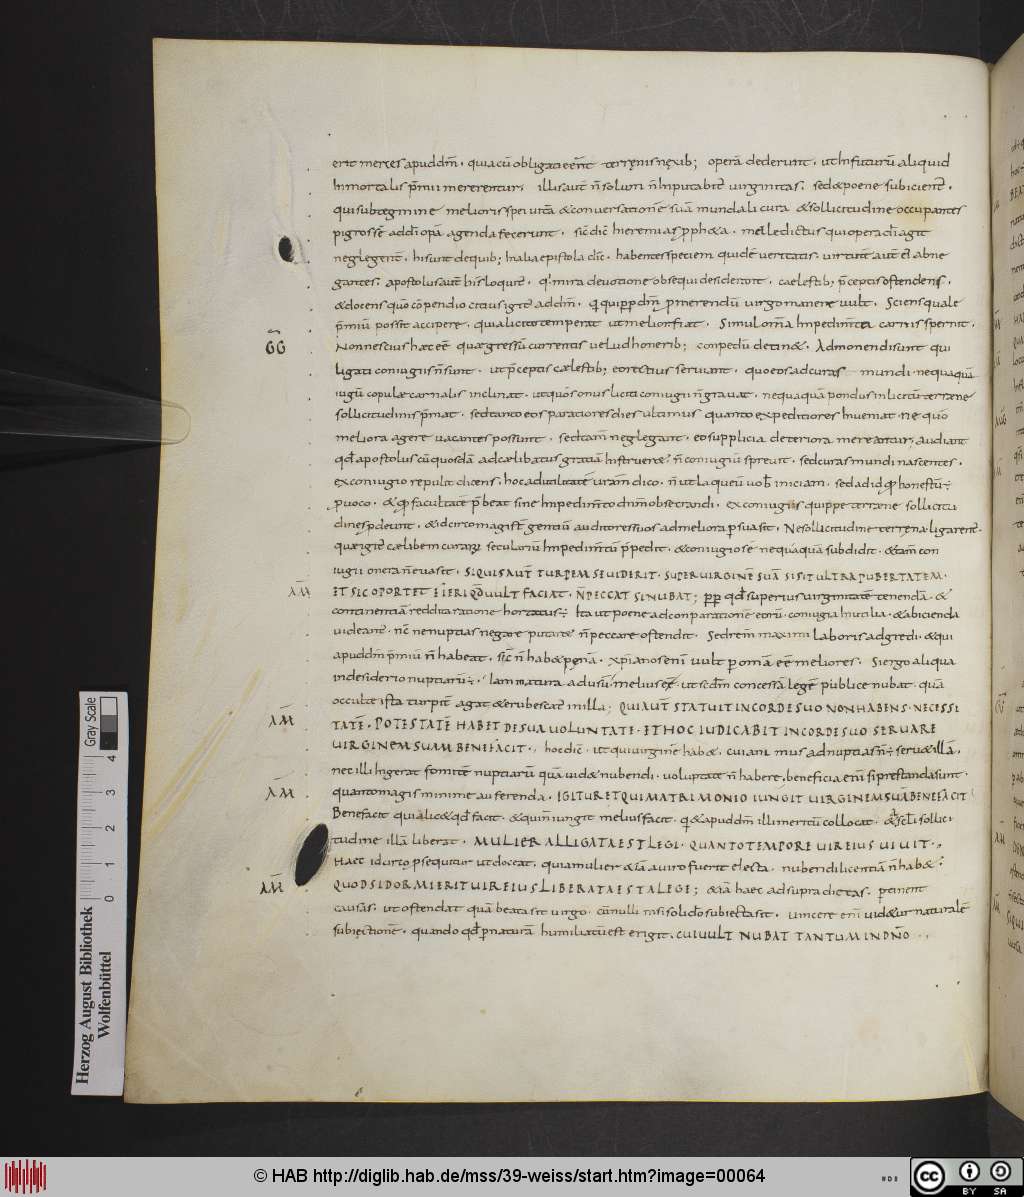 erit merces apud dm̄. quia cū obligati eēnt terrenis nexib; operā dederunt. ut in futurum aliquid
inmortalis p̄mii mererentur. illis aut̄ n̄ solum n̄ inputabit̄ virginitas. sed & poene subicient̄.
qui sub tegmine melioris spei vitā & conversationē suā mundali cura & sollicitudine occupantes
pigros se ad dī opā agenda fecerunt. sic̄ dic̄ hieremias propheta. maledictus qui opera dī agit
neglegent̄. hi sunt de quib; in alia epistola dic̄. habentes speciem quidē veritatis. virtutē aut̄ ei abne
gantes. apostolus aut̄ his loquit̄. qī mira devotione obsequi desiderant. caelestib; p̄ceptis ostendens.
& docens quo cōpendio citius igit̄ ad dm̄. qui quippe dm̄ p̄merendū virgo manere vult. Sciens quale
p̄miū possit accipere. qua licito temperat ut melior fiat. Simul om̄ia impedim̄ta carnis spernit.
Non nescius haec eē quae gressū currentis velud honerib; conpedū detin&. Admonendi sunt qui
ligati coniugiis n̄ sunt. ut p̄ceptis caelestib; eo rectius serviant. quo eos ad curas mundi nequaquā
iugū copulae carnalis inclinat. ut quos onus liciti coniugii n̄ gravat. nequaquā pondus inlicitū terrene
sollicitudinis p̄mat. sed tanto eos paratiores dies ultimus quanto expeditiores inveniat. ne quo
meliora agere vacantes possunt. sed tam̄ neglegant. eo supplicia deteriora mereantur. audiant
qd̄ apostolus cū quosdā ad caelibatus gratiam instruer&. n̄ coniugiū sprevit. sed curas mundi nascentes.
ex coniugio repulit dicens. hoc ad utilitatē vram̄ dico. n̄ ut laqueū vob̄ iniciam. sed ad id qd̄ honestū ÷
p̄voco. & qd̄ facultatē p̄beat sine impedim̄to dn̄m obsecrandi. ex coniugiis quippe terrene sollicitu
dines p̄deunt. & idcirco magist̄ gentiū auditores suos ad meliora p̄suasit. Ne sollicitudine terrena ligarent̄.
quae igit̄ caelibem curarum secularium impedim̄tū p̄pedit. & coniugio se nequaquā subdidit. & tam̄ con
iugii onera n̄ evasit. SI QUIS AUT̄ TURPEM SE VIDERIT. SUPER VIRGINĒ SUĀ SI SIT ULTRA PUBERTATEM.
ET SIC OPORTET FIERI QD̄ VULT FACIAT. N̄ PECCAT SI NUBAT; propter qd̄ superius virginitatē tenendā. &
continentiā reddita ratione hortatus ÷ Ita ut poene ad conparationē eorū. coniugia inutilia. & abicienda
videant̄. nc̄ ne nuptias negare putaret̄ n̄ peccare ostendit. Sed rem̄ maximi laboris adgredi. & qui
apud dm̄ p̄miū n̄ habeat. sic̄ n̄ hab& penā. xp̄ianos enī vult p omā eē meliores. Si ergo aliqua
in desiderio nuptiarū ÷. iam matura ad usū. melius ē. ut scdm̄ concessā legē publice nubat. quā
occulte ista turpit̄ agat & erubescat in illa; QUI AUT̄ STATUIT IN CORDE SUO NON HABENS. NECESSI
TATĒ. POTESTATĒ HABET DE SUA VOLUNTATE. ET HOC IUDICABIT IN CORDE SUO SERVARE
VIRGINEM SUAM BENEFACIT., hoc dic̄. ut qui virginē hab&. cui animus ad nuptias n̄ ÷ serv& illā.
nec illi ingerat fomitē nuptiarū quā vid& nubendi. voluptate n̄ habere. beneficia enī si prestanda sunt.
quanto magis minime auferenda. IGITUR ET QUI MATRIMONIO IUNGIT VIRGINEM SUĀ BENEFACIT
Benefacit quia lic& qd̄ facit. & qui n̄ iungit melius facit. qī & apud dm̄ illi meritū collocat. & a sc̄li sollici
tudine illā liberat. MULIER ALLIGATA EST LEGI. QUANTO TEMPORE VIR EIUS VIVIT.,
Haec idcirco p̄sequitur ut doceat. quia mulier & iā a viro fuerit electa. nubendi licentiā n̄ hab&;
QUOD SI DORMIERIT VIR EIUS LIBERATA EST A LEGE; & iā haec ad supradictas. p̄tinent
causas. ut ostendat quā beata sit virgo. cū nulli nisi soli dō subiecta sit. vincere enī vid&ur naturalē
subiectionē. quando qd̄ p naturā humiliatū est erigit. CUI VULT NUBAT TANTUM IN DNŌ..,
GG
Herzog August Bibliothek
Wolfenbüttel
Gray Scale
0 1 2 3 4
© HAB http://diglib.hab.de/mss/39-weiss/start.htm?image=00064
HAB
cc
BY SA